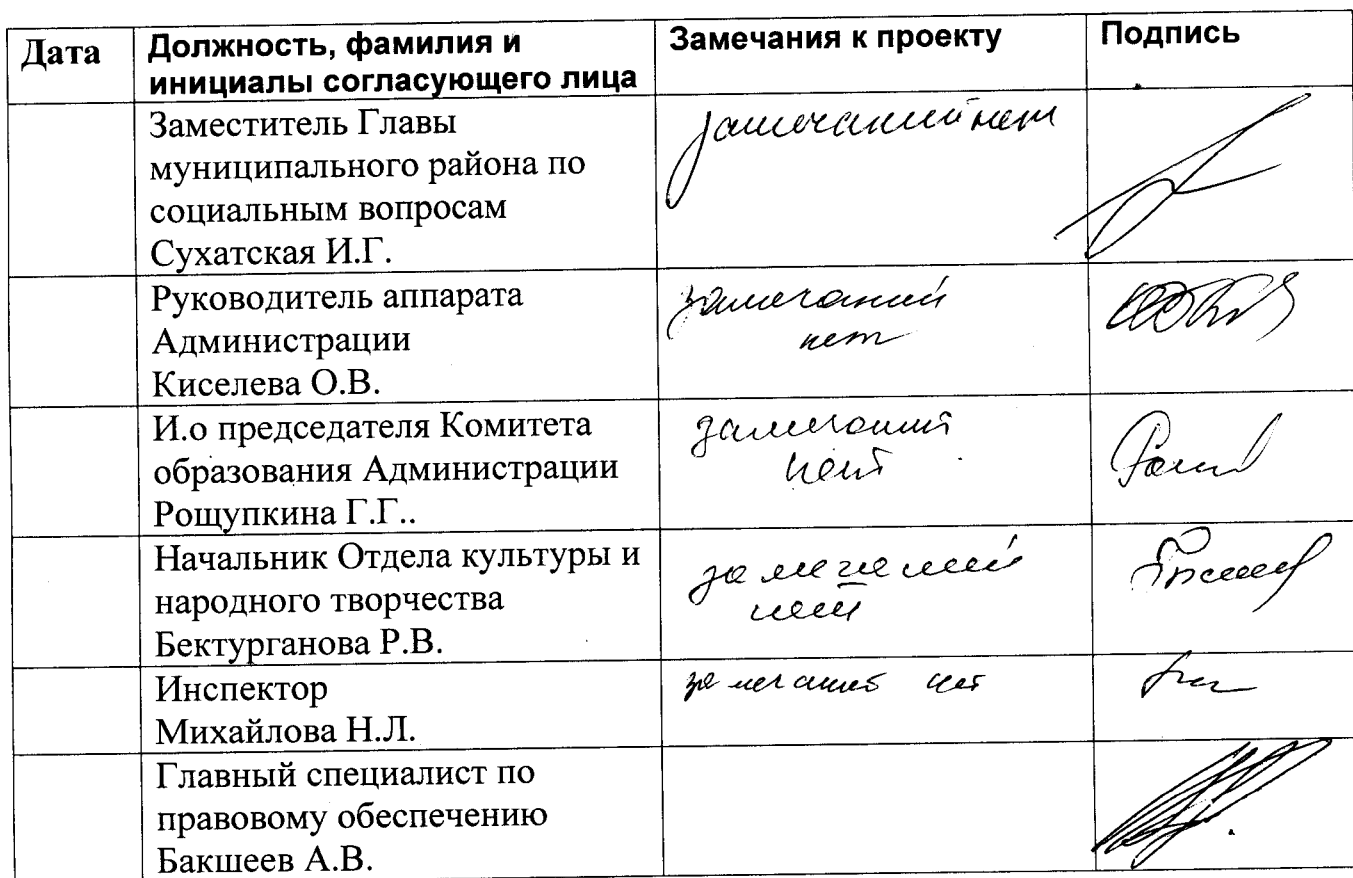 Дата
Должность, фамилия и
инициалы согласующего лица
Замечания к проекту
Подпись
Заместитель Главы
муниципального района по
социальным вопросам
Сухатская И.Г.
замечаний нет
Руководитель аппарата
Администрации
Киселева О.В.
замечаний
нет
И.о председателя Комитета
образования Администрации
Рощупкина Г.Г..
замечаний
нет
Начальник Отдела культуры и
народного творчества
Бектурганова Р.В.
замечаний
нет
Инспектор
Михайлова Н.Л.
замечаний нет
Главный специалист по
правовому обеспечению
Бакшеев А.В.